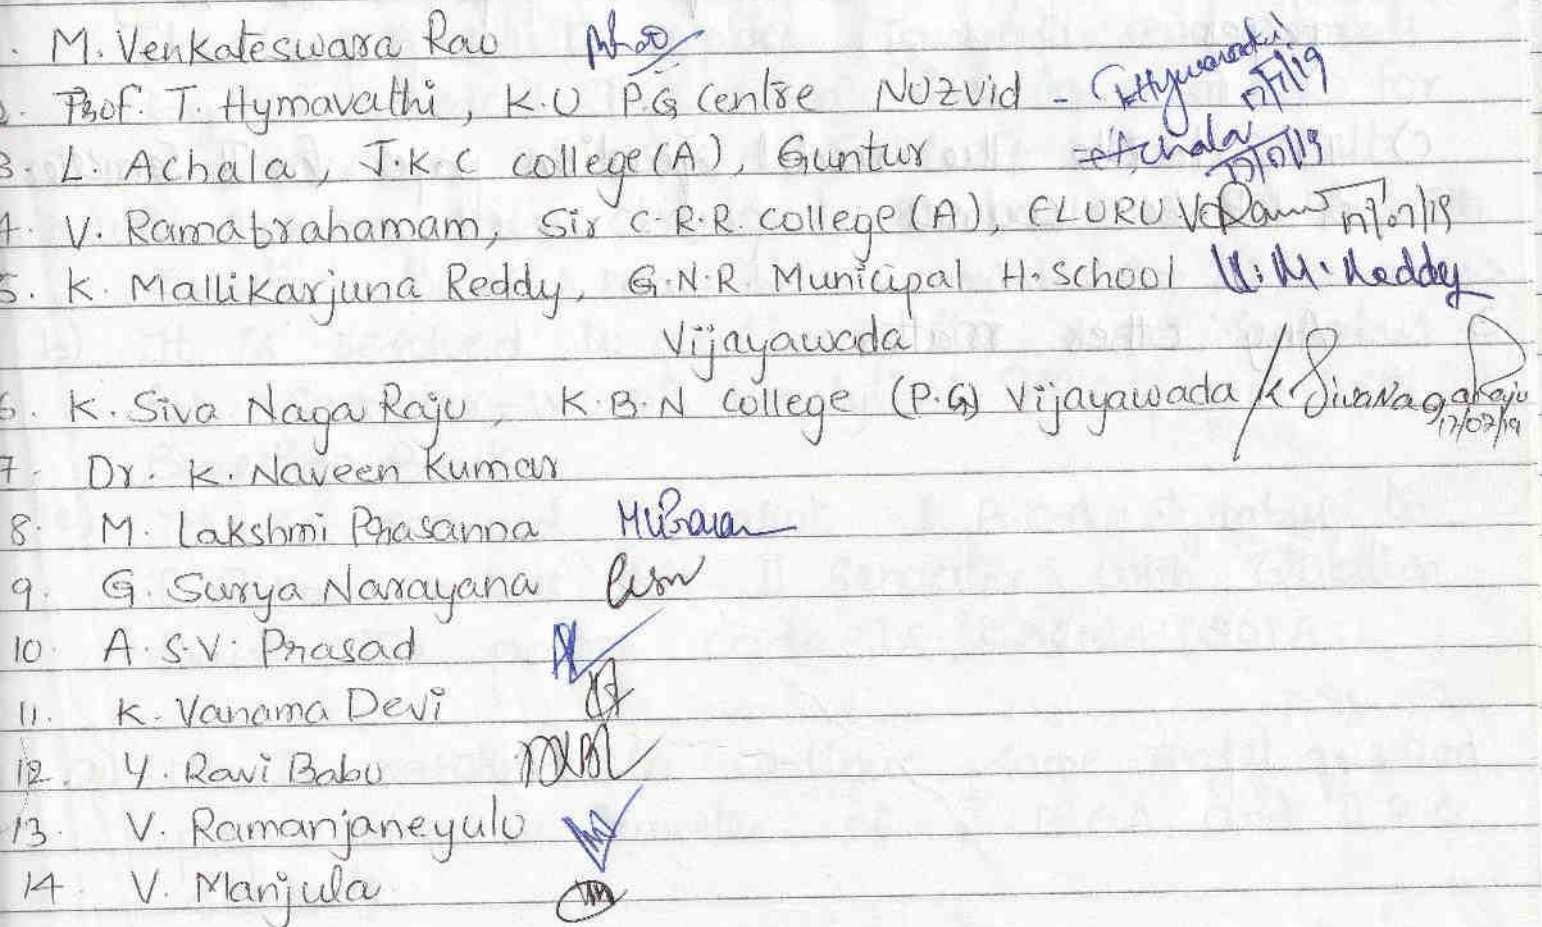 . M. Venkateswara Rao
2. Prof. T. Hymavathi, K.U P.G Centre Nuzvid - T Hymavathi 17/7/19
3. L. Achala, J.K.C college (A), Guntur Achala 17/07/19
4. V. Ramabrahamam, Sir C.R.R. college (A), ELURU 17/07/19
5. K. Mallikarjuna Reddy, G.N.R. Municipal H. School K. M. Reddy
Vijayawada
6. K. Siva Naga Raju, K.B.N College (P.G) Vijayawada K Siva Naga Raju 17/07/19
7. Dr. K. Naveen Kumar
8. M. Lakshmi Prasanna
9. G. Surya Narayana
10. A.S.V. Prasad
11. K. Vanama Devi
12. Y. Ravi Babu
13. V. Ramanjaneyulu
14. V. Manjula